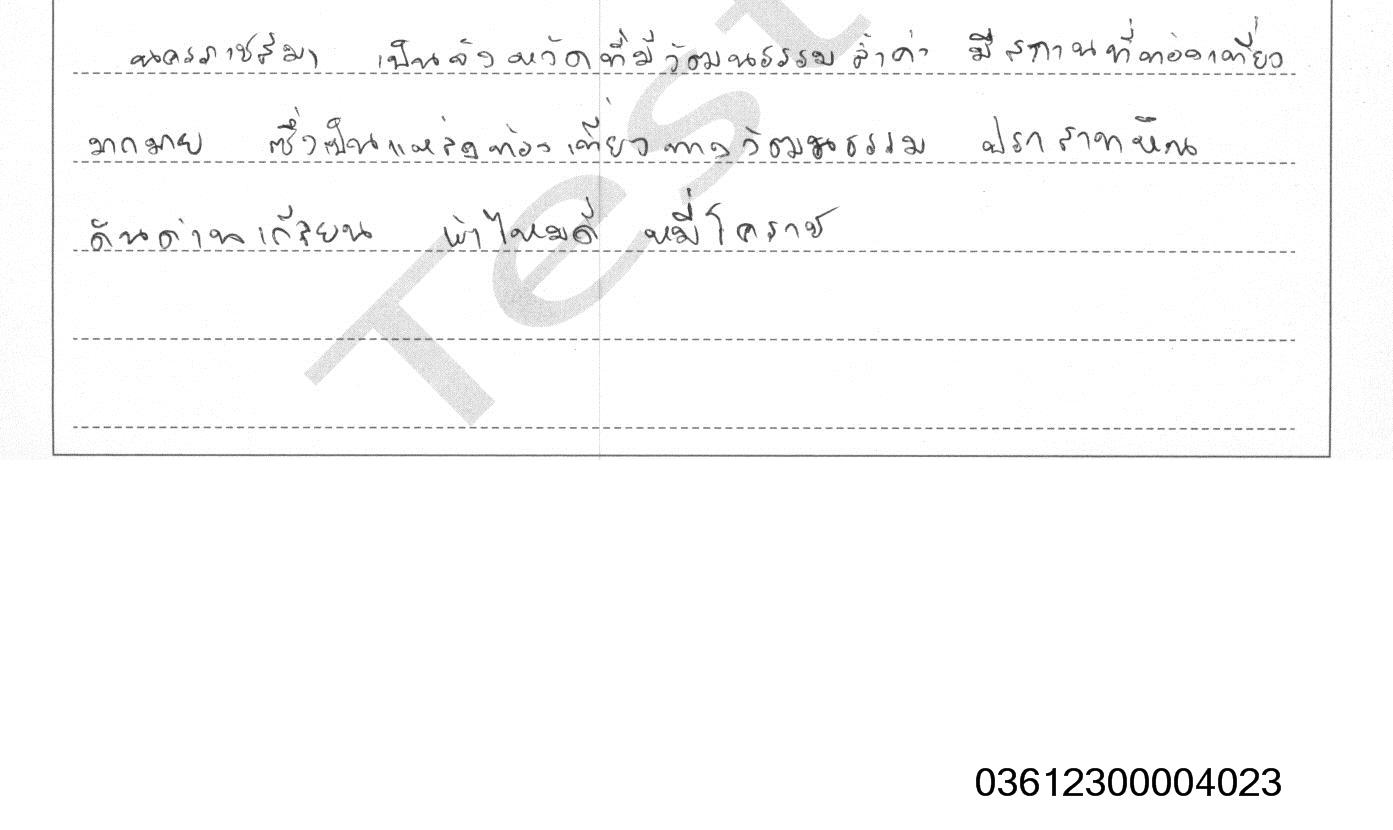 นครราชสีมา เป็นจังหวัดที่มีวัฒนธรรมล้ำค่า มีสถานที่ท่องเที่ยว
มากมาย ซึ่งเป็นแหล่งท่องเที่ยวทางวัฒนธรรม ปราสาทหิน
ดันด่านเกลียน ผ้าไหมดี หมี่โคราช
Test
03612300004023